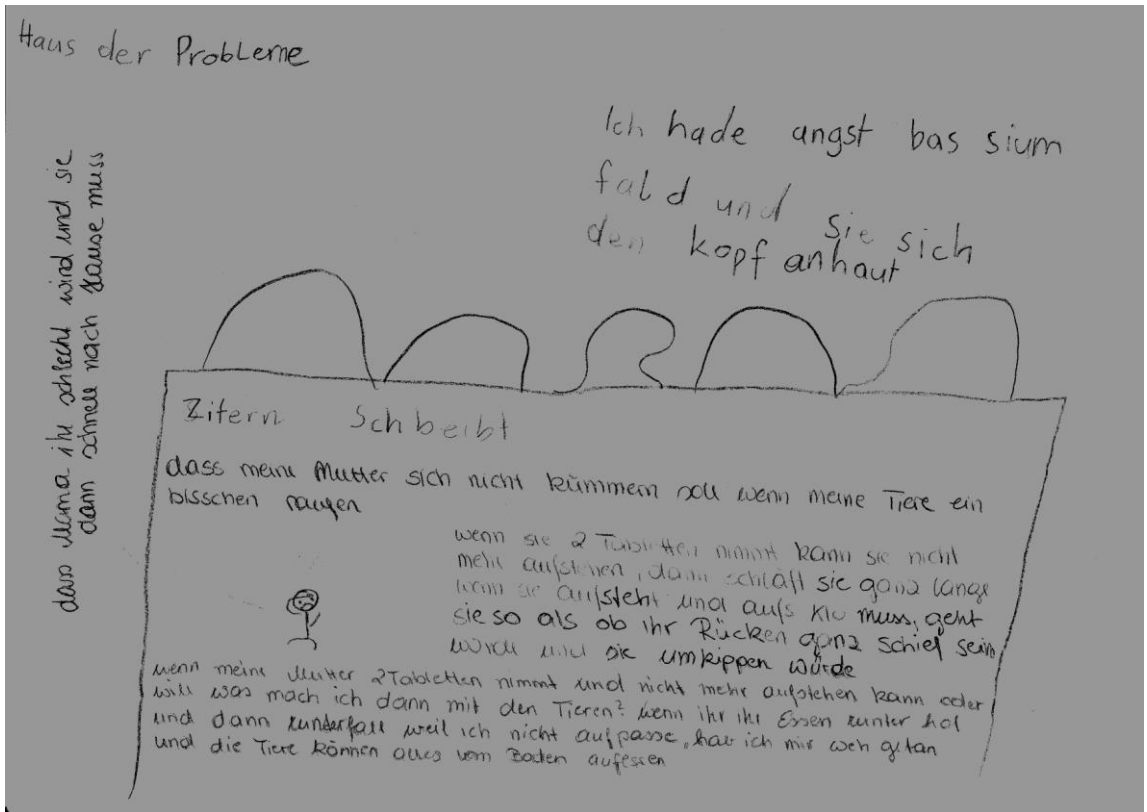 Haus der Probleme
Ich hade angst bas sium
fald und sie sich
den kopf anhaut
dass Mama ihr schlecht wird und sie
dann schnell nach Hause muss
Zitern Schbeibt
dass meine Mutter sich nicht kümmern soll wenn meine Tiere ein
bisschen
wenn sie 2 Tabletten nimmt kann sie nicht
mehr aufstehen, dann schläft sie ganz lange
wenn sie aufsteht und aufs Klo muss, geht
sie so als ob ihr Rücken ganz schief sein
würde und sie umkippen würde
wenn meine Mutter 2 Tabletten nimmt und nicht mehr aufstehen kann oder
will was mach ich dann mit den Tieren? wenn ihr ihr Essen runter hol
und dann runterfall weil ich nicht aufpasse, hab ich mir weh getan
und die Tiere können alles vom Boden aufessen